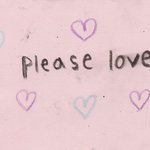 please love